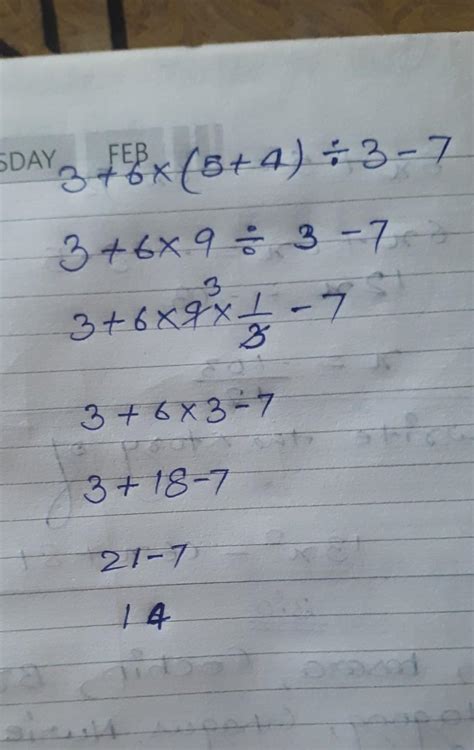 SDAY FEB
3+6×(5+4)÷3-7
3+6×9÷3-7
3+6×9³×1/3-7
3+6×3-7
3+18-7
21-7
14